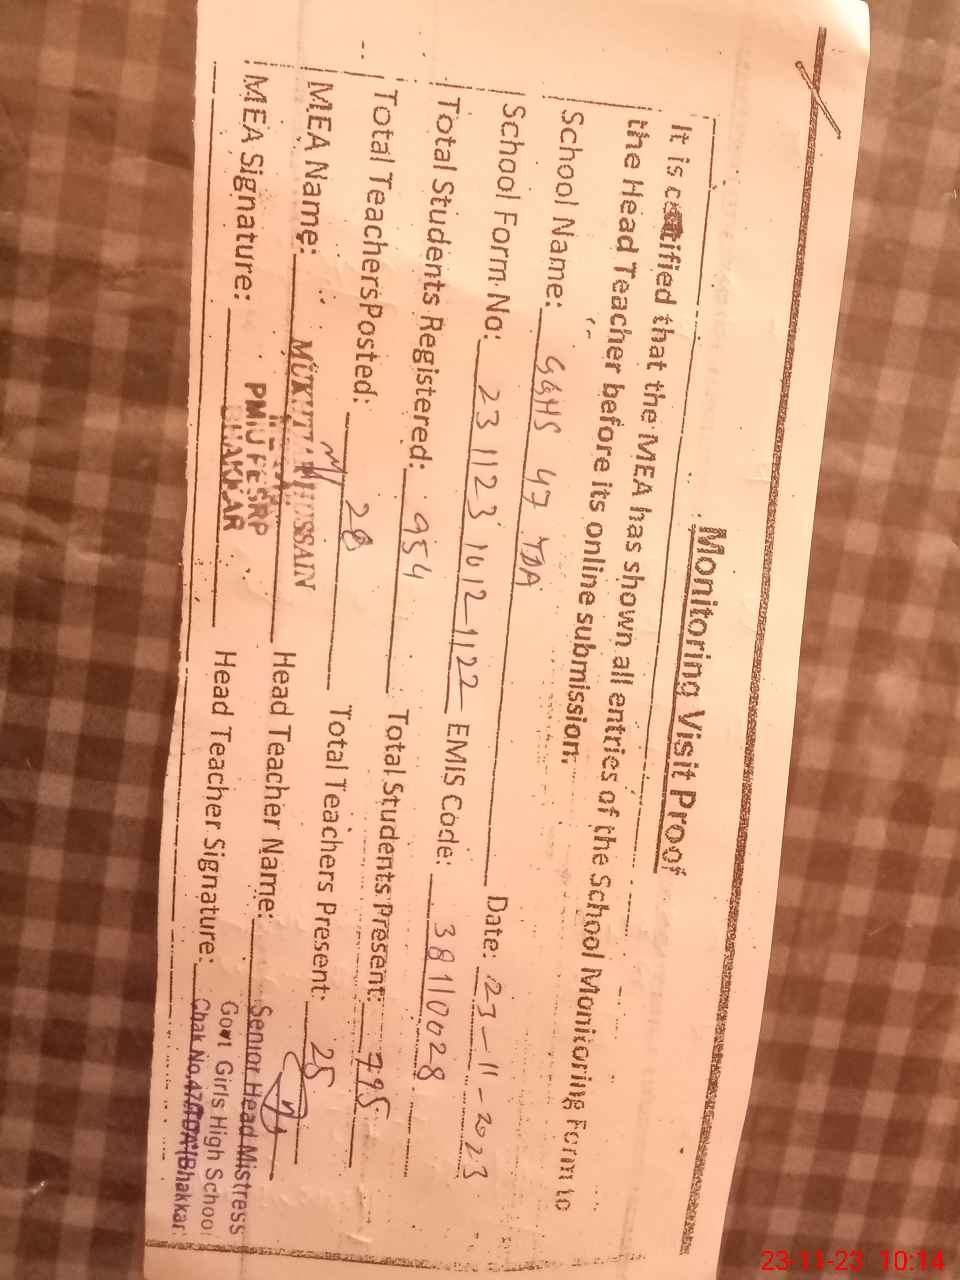 Monitoring Visit Proof
It is certified that the MEA has shown all entries of the School Monitoring Form to
the Head Teacher before its online submission.
School Name: GGHS 47 TDA Date: 23-11-2023
School Form No: 23 1123 1012-1122 EMIS Code: 38110028
Total Students Registered: 954 Total Students Present: 795
Total Teachers Posted: 28 Total Teachers Present: 25
MEA Name: MUKHTAR HUSSAIN Head Teacher Name:
MEA Signature: PMIU PESRP
BHAKKAR
Head Teacher Signature:
Senior Head Mistress
Govt Girls High School
Chak No.47/TDA (Bhakkar)
23-11-23 10:14